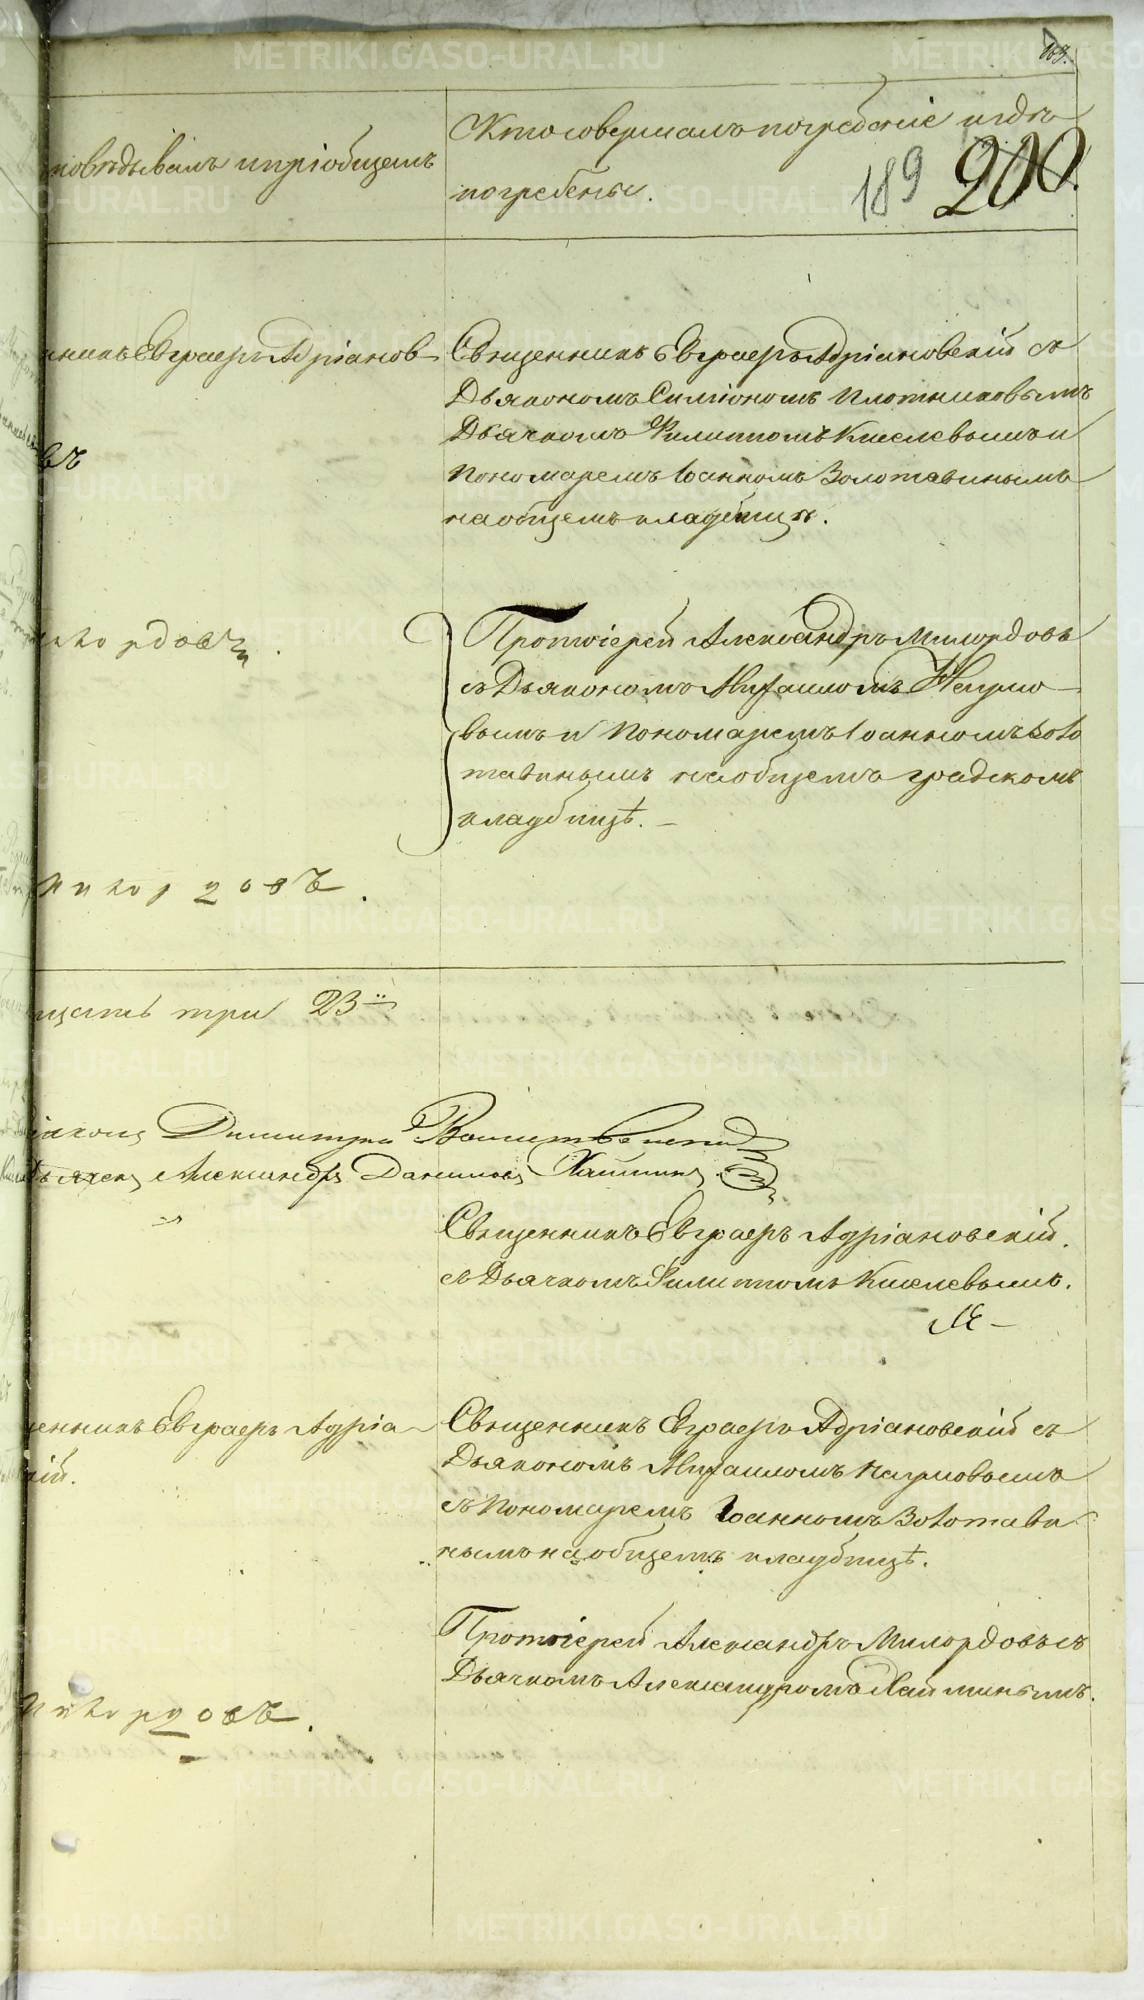 169.
Кто совершалъ погребеніе и гдѣ
повѣдывалъ и пріобщалъ
погребены.
189 200.
никъ Евграфъ Адріанов
Священникъ Евграфъ Адріановскій съ
Дьякономъ Симіономъ Плотниковымъ
Дьячкомъ Филиппомъ Киселевымъ и
въ
Пономаремъ Іоанномъ Золотавинымъ
на общемъ кладбищѣ.
Протоіерей Александръ Милордовъ
лордовъ.
съ Дьякономъ Михаиломъ Наумо
вымъ и Пономаремъ Іоанномъ Золо
тавинымъ на общемъ градскомъ
кладбищѣ.
Милордовъ.
цать три 23
іаконъ Димитрій
Дьячекъ Александръ Даниловъ Хайминъ
Священникъ Евграфъ Адріановскій.
съ Дьячкомъ Филиппомъ Киселевымъ.
щенникъ Евграфъ Адріа
Священникъ Евграфъ Адріановскій съ
кій.
Дьякономъ Михаиломъ Наумовымъ
съ Пономаремъ Іоанномъ Золотави
нымъ на общемъ кладбищѣ.
Протоіерей Александръ Милордовъ съ
Дьячкомъ Александромъ Хайминымъ.
Милордовъ.
METRIKI.GASO-URAL.RU